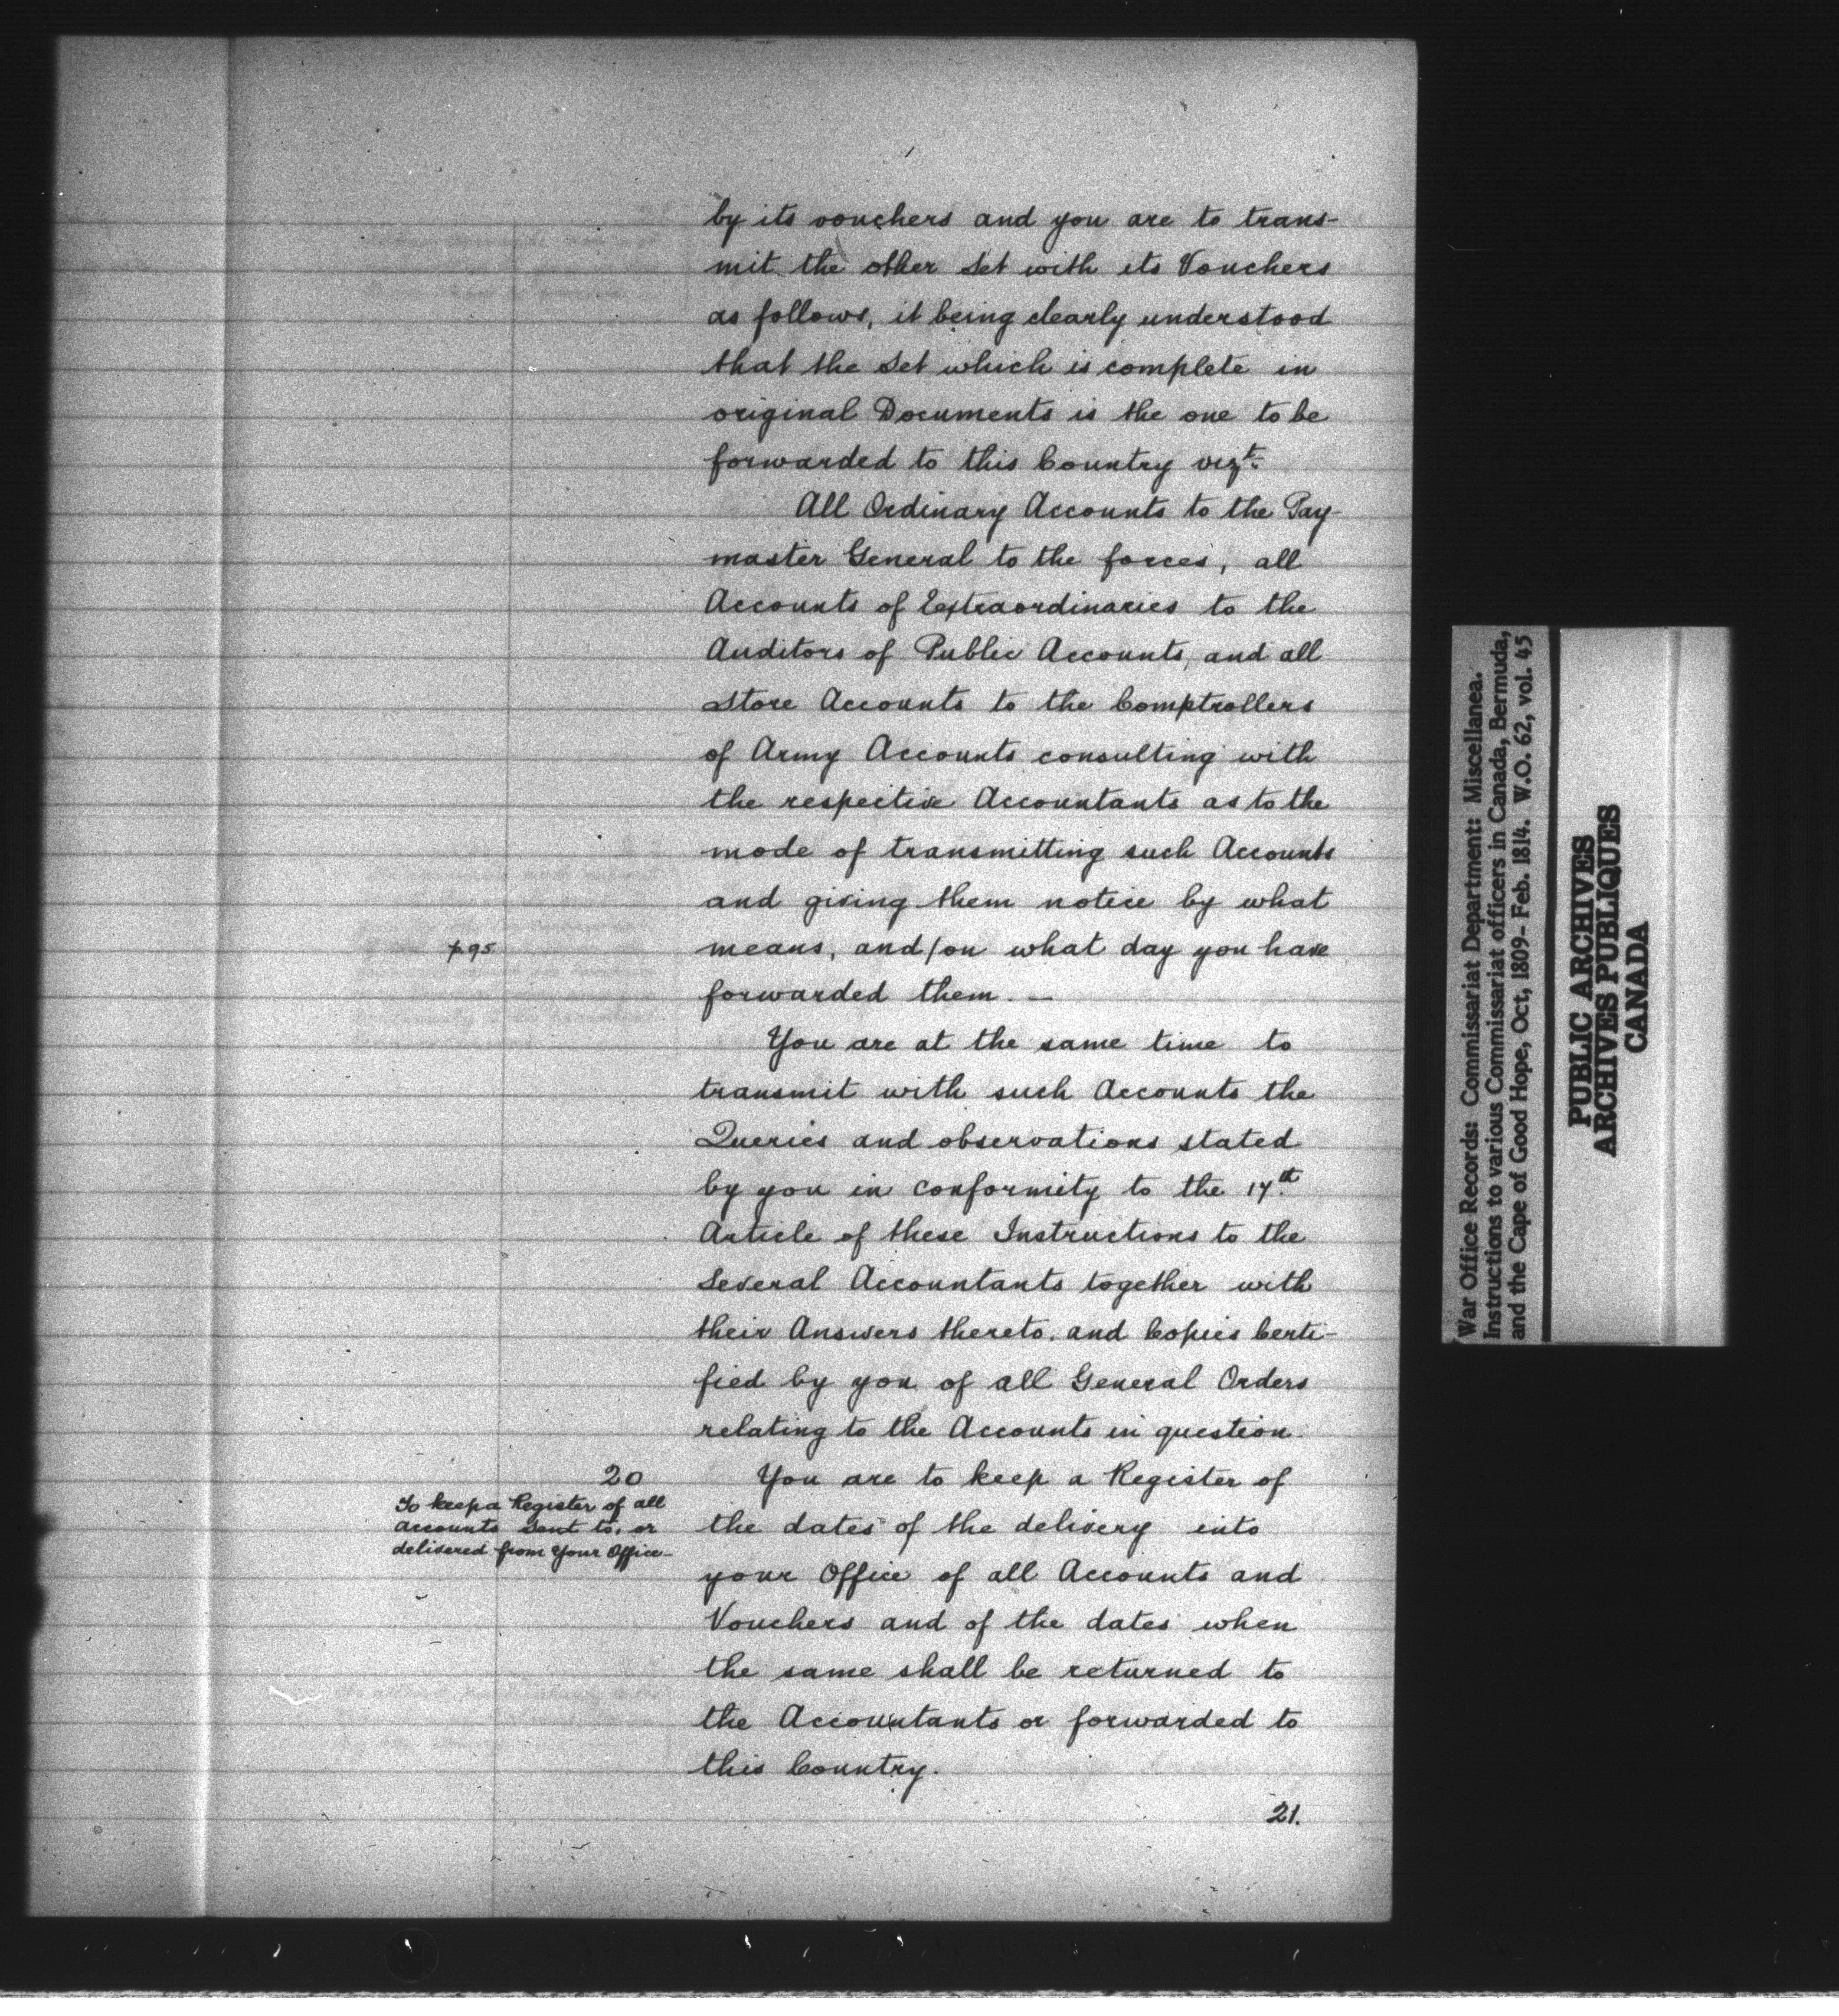 by its vouchers and you are to trans-
mit the other Set with its Vouchers
as follows, it being clearly understood
that the Set which is complete in
original Documents is the one to be
forwarded to this Country vizt.
All Ordinary Accounts to the Pay-
master General to the forces, all
Accounts of Extraordinaries to the
Auditors of Public Accounts, and all
Store Accounts to the Comptrollers
of Army Accounts consulting with
the respective Accountants as to the
mode of transmitting such Accounts
and giving them notice by what
p. 95
means, and/on what day you have
forwarded them. —
You are at the same time to
transmit with such Accounts the
Queries and observations stated
by you in conformity to the 17th
Article of these Instructions to the
Several Accountants together with
their Answers thereto, and Copies Certi-
fied by you of all General Orders
relating to the Accounts in question.
20
To keep a Register of all
accounts sent to, or
delivered from Your Office —
You are to keep a Register of
the dates of the delivery into
your Office of all Accounts and
Vouchers and of the dates when
the same shall be returned to
the Accountants or forwarded to
this Country.
21.
War Office Records: Commissariat Department: Miscellanea.
Instructions to various Commissariat officers in Canada, Bermuda,
and the Cape of Good Hope, Oct, 1809- Feb. 1814. W.O. 62, vol. 45
PUBLIC ARCHIVES
ARCHIVES PUBLIQUES
CANADA